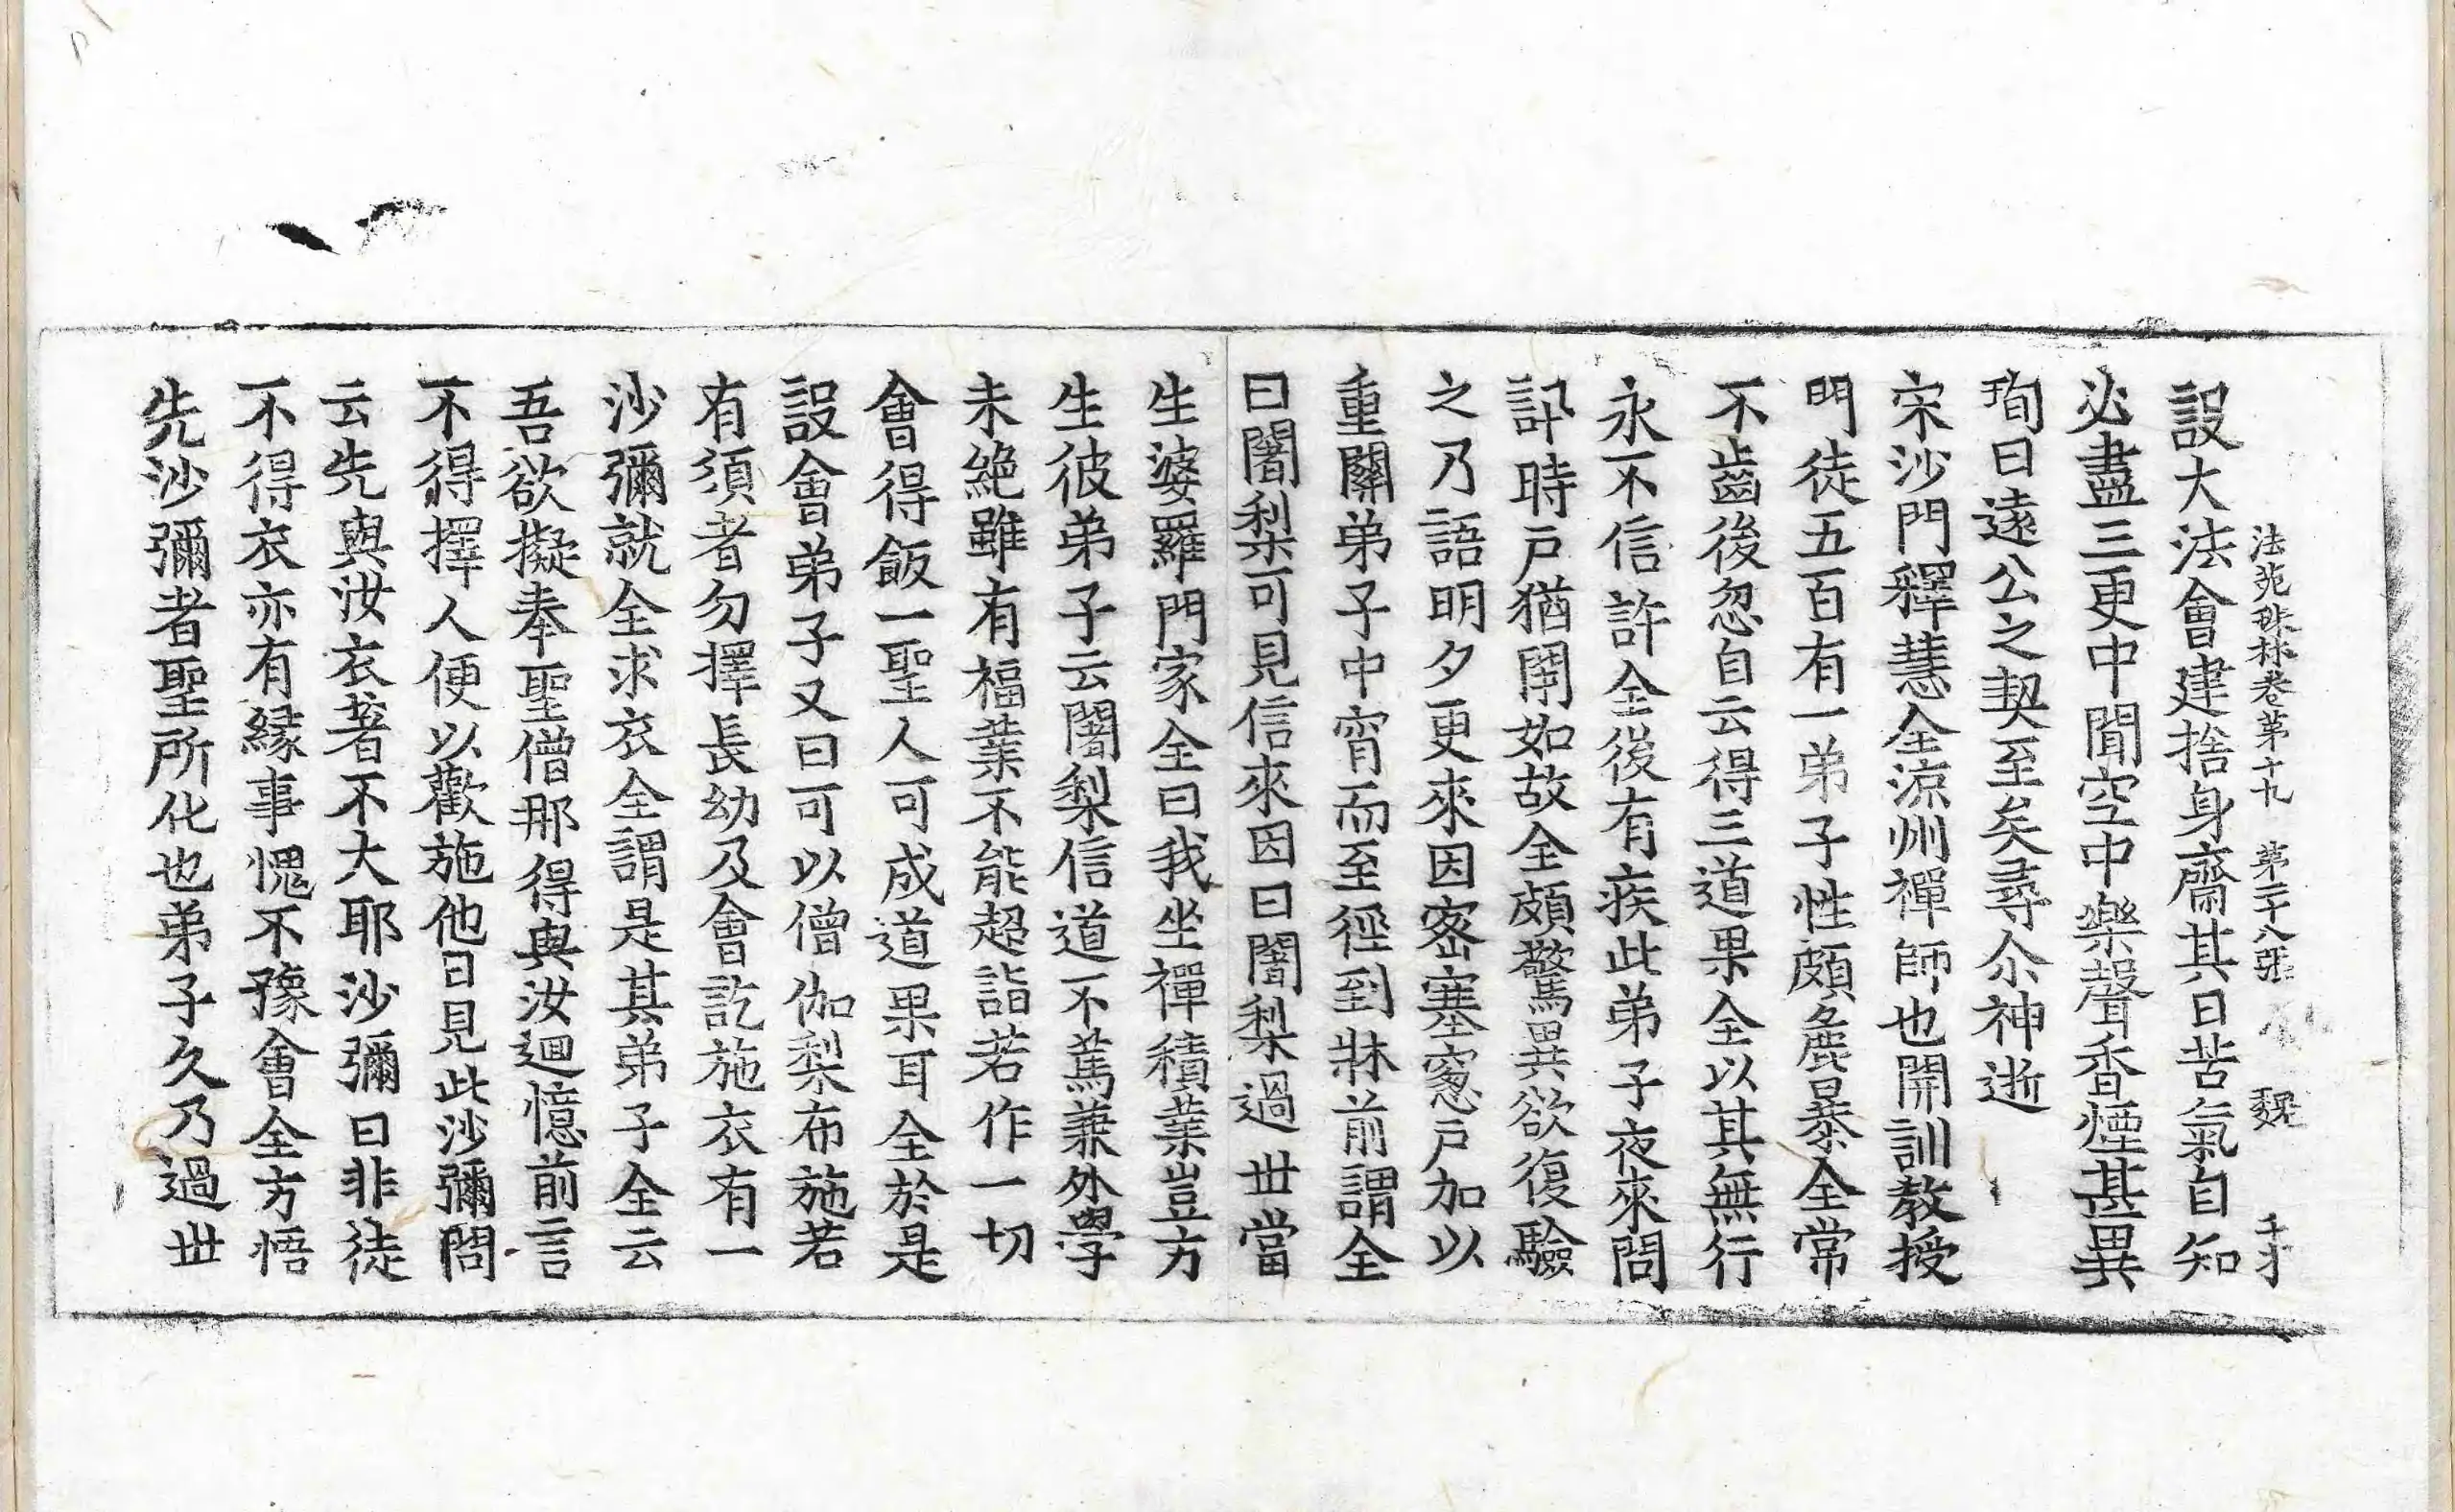 法苑珠林卷第十九　第二十八張　魏　千才
設大法會建捨身齋其日苦氣自知
必盡三更中聞空中樂聲香煙甚異
珣曰遠公之契至矣尋尒神逝
宋沙門釋慧全涼州禪師也開訓教授
門徒五百有一弟子性頗麁暴全常
不齒後忽自云得三道果全以其無行
永不信許全後有疾此弟子夜來問
訊時戶猶閇如故全頗驚異欲復驗
之乃語明夕更來因密塞窓戶加以
重關弟子中宵而至徑到牀前謂全
曰闍梨可見信來因曰闍梨過世當
生婆羅門家全曰我坐禪積業豈方
生彼弟子云闍梨信道不篤兼外學
未絕雖有福業不能超詣若作一切
會得飯一聖人可成道果耳全於是
設會弟子又曰可以僧伽梨布施若
有須者勿擇長幼及會訖施衣有一
沙彌就全求衣全謂是其弟子全云
吾欲擬奉聖僧那得與汝迴憶前言
不得擇人便以歡施他日見此沙彌問
云先與汝衣著不大耶沙彌曰非徒
不得衣亦有緣事愧不豫會全方悟
先沙彌者聖所化也弟子久乃過世